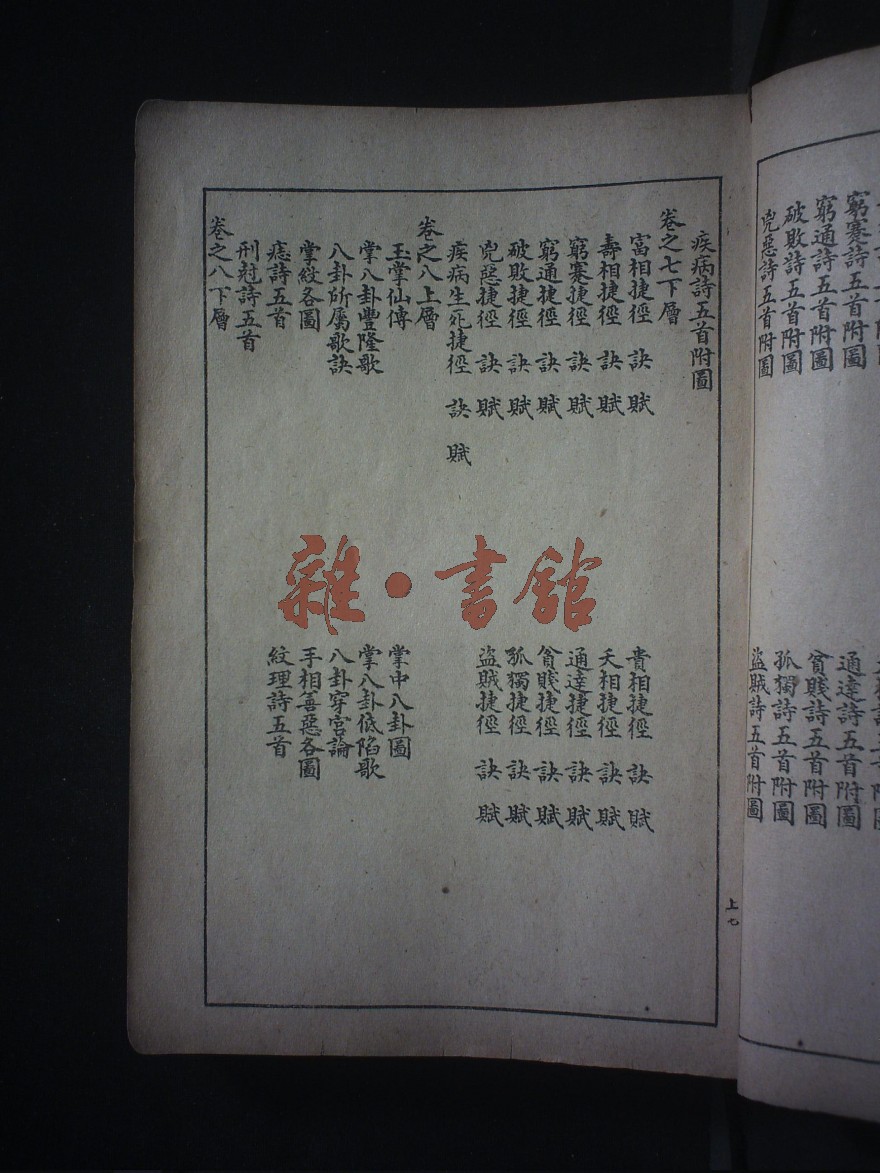 窮蹇詩五首附圖
窮通詩五首附圖
通達詩五首附圖
破敗詩五首附圖
貧賤詩五首附圖
兇惡詩五首附圖
孤獨詩五首附圖
盜賊詩五首附圖
疾病詩五首附圖
卷之七下層
富相捷徑 訣 賦
貴相捷徑 訣 賦
壽相捷徑 訣 賦
夭相捷徑 訣 賦
窮蹇捷徑 訣 賦
通達捷徑 訣 賦
窮通捷徑 訣 賦
貧賤捷徑 訣 賦
破敗捷徑 訣 賦
孤獨捷徑 訣 賦
兇惡捷徑 訣 賦
盜賊捷徑 訣 賦
疾病生死捷徑 訣 賦
卷之八上層
玉掌仙傳
掌中八卦圖
掌八卦豐隆歌
掌八卦低陷歌
八卦所屬歌訣
八卦穿宮論
掌紋各圖
手相善惡各圖
痣詩五首
紋理詩五首
刑尅詩五首
卷之八下層
上七
雜·書館